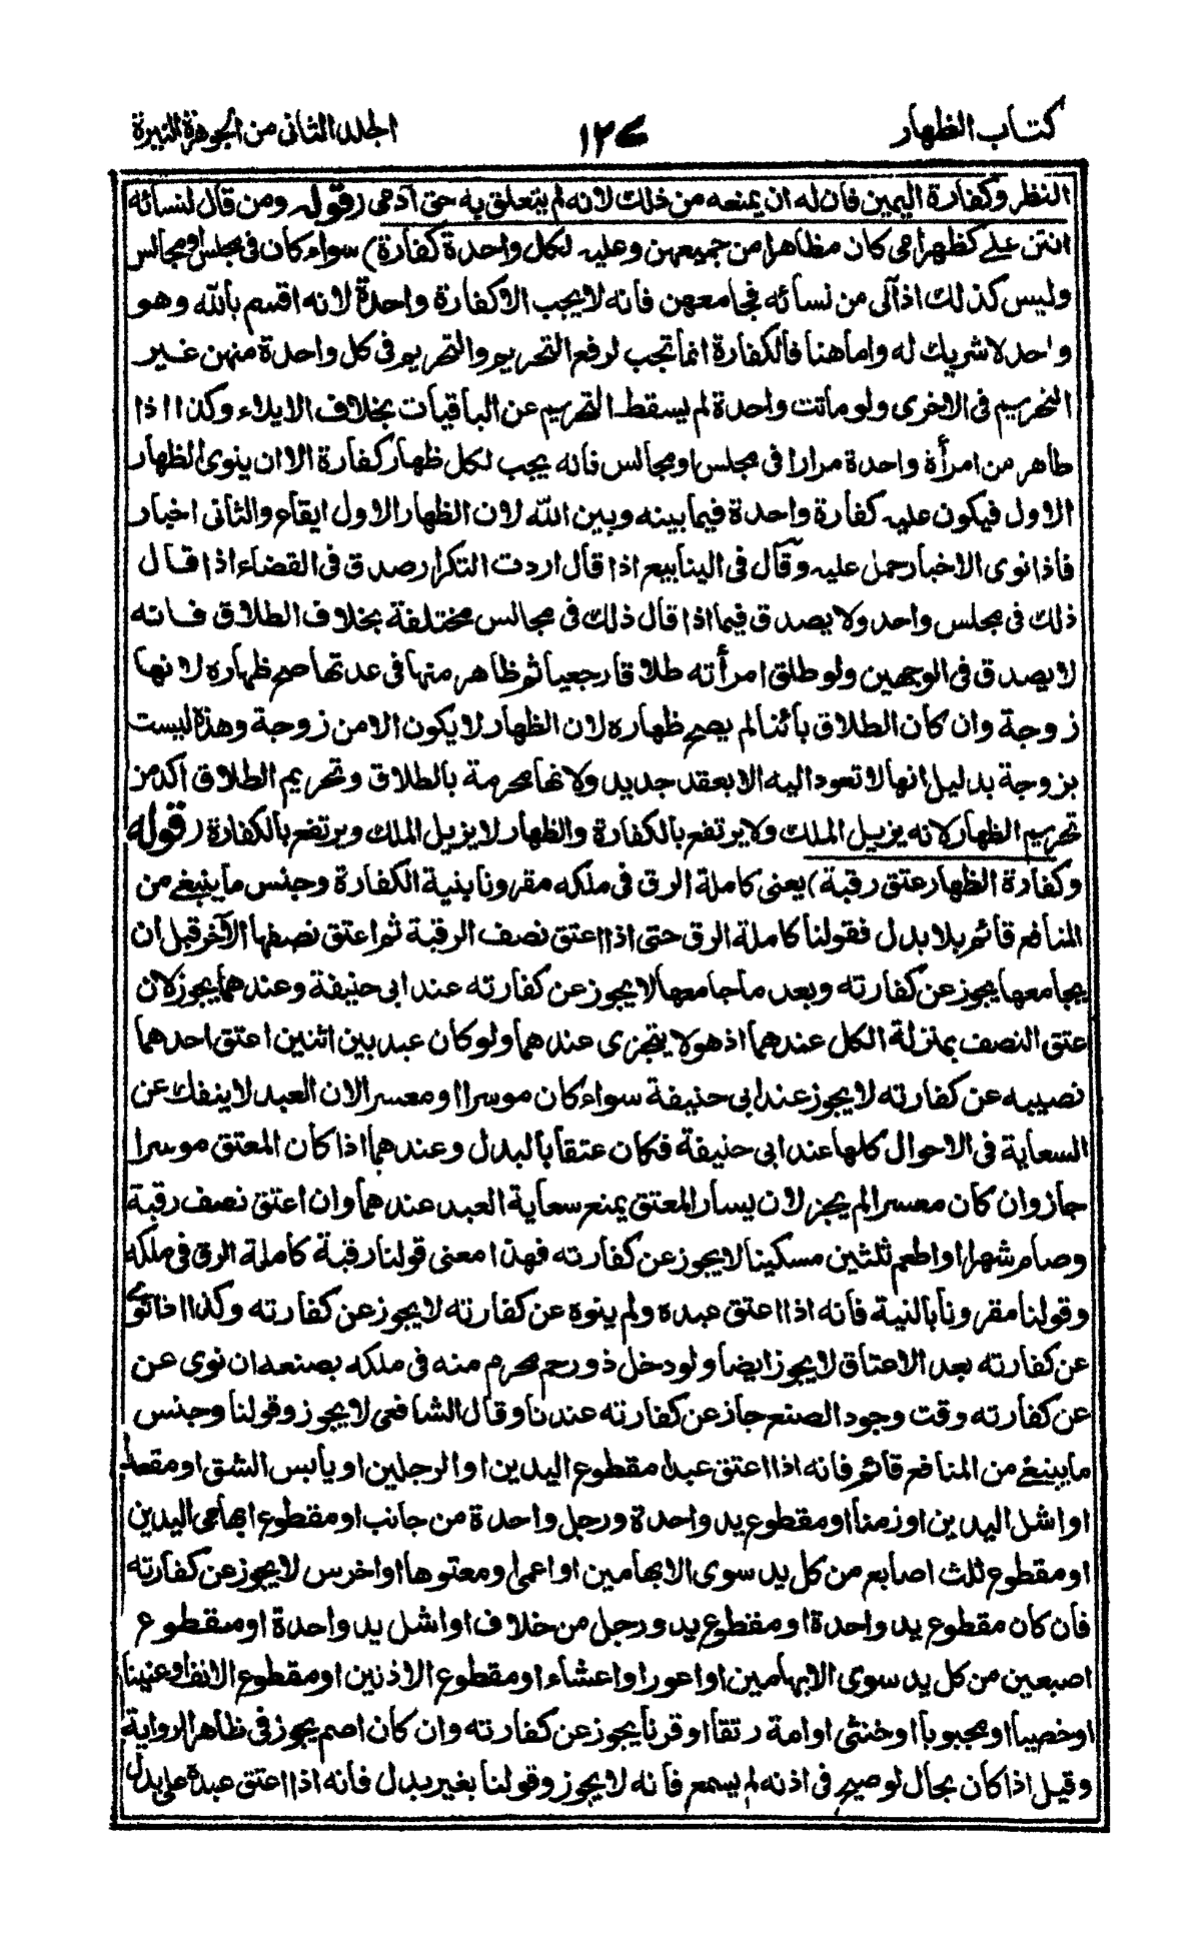 كتاب الظهار
١٢٧
الجلد الثانى من الجوهرة النيرة
النظر وكفارة اليمين فان له ان يمنعه من ذلك لانه لم يتعلق به حق آدمى (قوله ومن قال لنسائه
انتن على كظهر امى كان مظاهرا من جميعهن وعليه لكل واحدة كفارة) سواء كان فى مجلس او مجالس
وليس كذلك اذا آلى من نسائه فجامعهن فانه لا يجب الا كفارة واحدة لانه اقسم بالله وهو
واحد لا شريك له واما هنا فالكفارة انما تجب لرفع التحريم والتحريم فى كل واحدة منهن غير
التحريم فى الاخرى ولو ماتت واحدة لم يسقط التحريم عن الباقيات بخلاف الايلاء وكذا اذا
ظاهر من امرأة واحدة مرارا فى مجلس او مجالس فانه يجب لكل ظهار كفارة الا ان ينوى الظهار
الاول فيكون عليه كفارة واحدة فيما بينه وبين الله لان الظهار الاول ايقاع والثانى اخبار
فاذا نوى الاخبار حمل عليه وقال فى الينابيع اذا قال اردت التكرار صدق فى القضاء اذا قال
ذلك فى مجلس واحد ولا يصدق فيما اذا قال ذلك فى مجالس مختلفة بخلاف الطلاق فانه
لا يصدق فى الوجهين ولو طلق امرأته طلاقا رجعيا ثم ظاهر منها فى عدتها صح ظهاره لانها
زوجة وان كان الطلاق بائنا لم يصح ظهاره لان الظهار لا يكون الا من زوجة وهذه ليست
بزوجة بدليل انها لا تعود اليه الا بعقد جديد ولانها محرمة بالطلاق وتحريم الطلاق اكد من
تحريم الظهار لانه يزيل الملك ولا يرتفع بالكفارة والظهار لا يزيل الملك ويرتفع بالكفارة (قوله
وكفارة الظهار عتق رقبة) يعنى كاملة الرق فى ملكه مقرونا بنية الكفارة وجنس ما ينبغى من
المنافع قائم بلا بدل فقولنا كاملة الرق حتى اذا اعتق نصف الرقبة ثم اعتق نصفها الآخر قبل ان
يجامعها يجوز عن كفارته وبعد ما جامعها لا يجوز عن كفارته عند ابى حنيفة وعندهما يجوز لان
عتق النصف بمنزلة الكل عندهما اذ هو لا يتجزى عندهما ولو كان عبد بين اثنين اعتق احدهما
نصيبه عن كفارته لا يجوز عند ابى حنيفة سواء كان موسرا او معسرا لان العبد لا ينفك عن
السعاية فى الاحوال كلها عند ابى حنيفة فكان عتقا بالبدل وعندهما اذا كان المعتق موسرا
جاز وان كان معسرا لم يجز لان يسار المعتق يمنع سعاية العبد عندهما وان اعتق نصف رقبة
وصام شهرا او اطعم ثلثين مسكينا لا يجوز عن كفارته فهذا معنى قولنا رقبة كاملة الرق فى ملكه
وقولنا مقرونا بالنية فانه اذا اعتق عبده ولم ينوه عن كفارته لا يجوز عن كفارته وكذا اذا نوى
عن كفارته بعد الاعتاق لا يجوز ايضا ولو دخل ذو رحم محرم منه فى ملكه بصنعه ان نوى عن
عن كفارته وقت وجود الصنع جاز عن كفارته عندنا وقال الشافعى لا يجوز وقولنا وجنس
ما ينبغى من المنافع قائم فانه اذا اعتق عبدا مقطوع اليدين او الرجلين او يابس الشق او مقعدا
او اشل اليدين او زمنا او مقطوع يد واحدة ورجل واحدة من جانب او مقطوع ابهامى اليدين
او مقطوع ثلث اصابع من كل يد سوى الابهامين او اعمى او معتوها او اخرس لا يجوز عن كفارته
فان كان مقطوع يد واحدة او مقطوع يد ورجل من خلاف او اشل يد واحدة او مقطوع
اصبعين من كل يد سوى الابهامين او اعورا او اعشاء او مقطوع الاذنين او مقطوع الانف او عنينا
او خصيا او مجبوبا او خنثى او امة رتقا او قرنا يجوز عن كفارته وان كان اصم يجوز فى ظاهر الرواية
وقيل اذا كان بحال لو صيح فى اذنه لم يسمع فانه لا يجوز وقولنا بغير بدل فانه اذا اعتق عبده على بدل